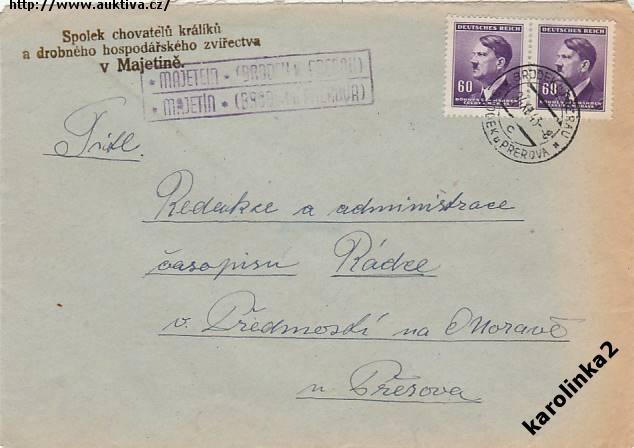 http://www.auktiva.cz/
Spolek chovatelů králíků
a drobného hospodářského zvířectva
v Majetíně.
DEUTSCHES REICH DEUTSCHES REICH
60 60
BÖHMEN u. MÄHREN
ČECHY a MORAVA
* MAJETEIN * (BRODEK b. PRERAU)
* MAJETÍN * (BRODEK u PŘEROVA)
BRODEK PRERAU
BRODEK u PŘEROVA
Titl.
Redakce a administrace
časopisu Rádce
v Předmostí na Moravě
u Přerova
karolinka2